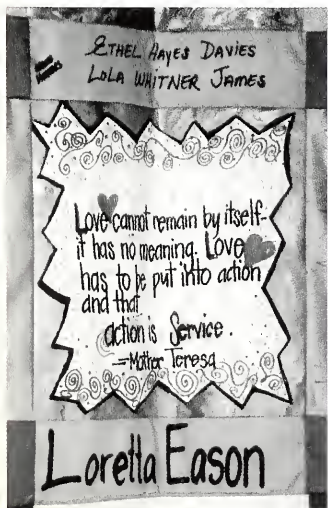 ETHEL HAYES DAVIES
LOLA WHITNER JAMES
Love cannot remain by itself-
it has no meaning. Love
has to be put into action
and that
action is Service.
-Mother Teresa
Loretta Eason